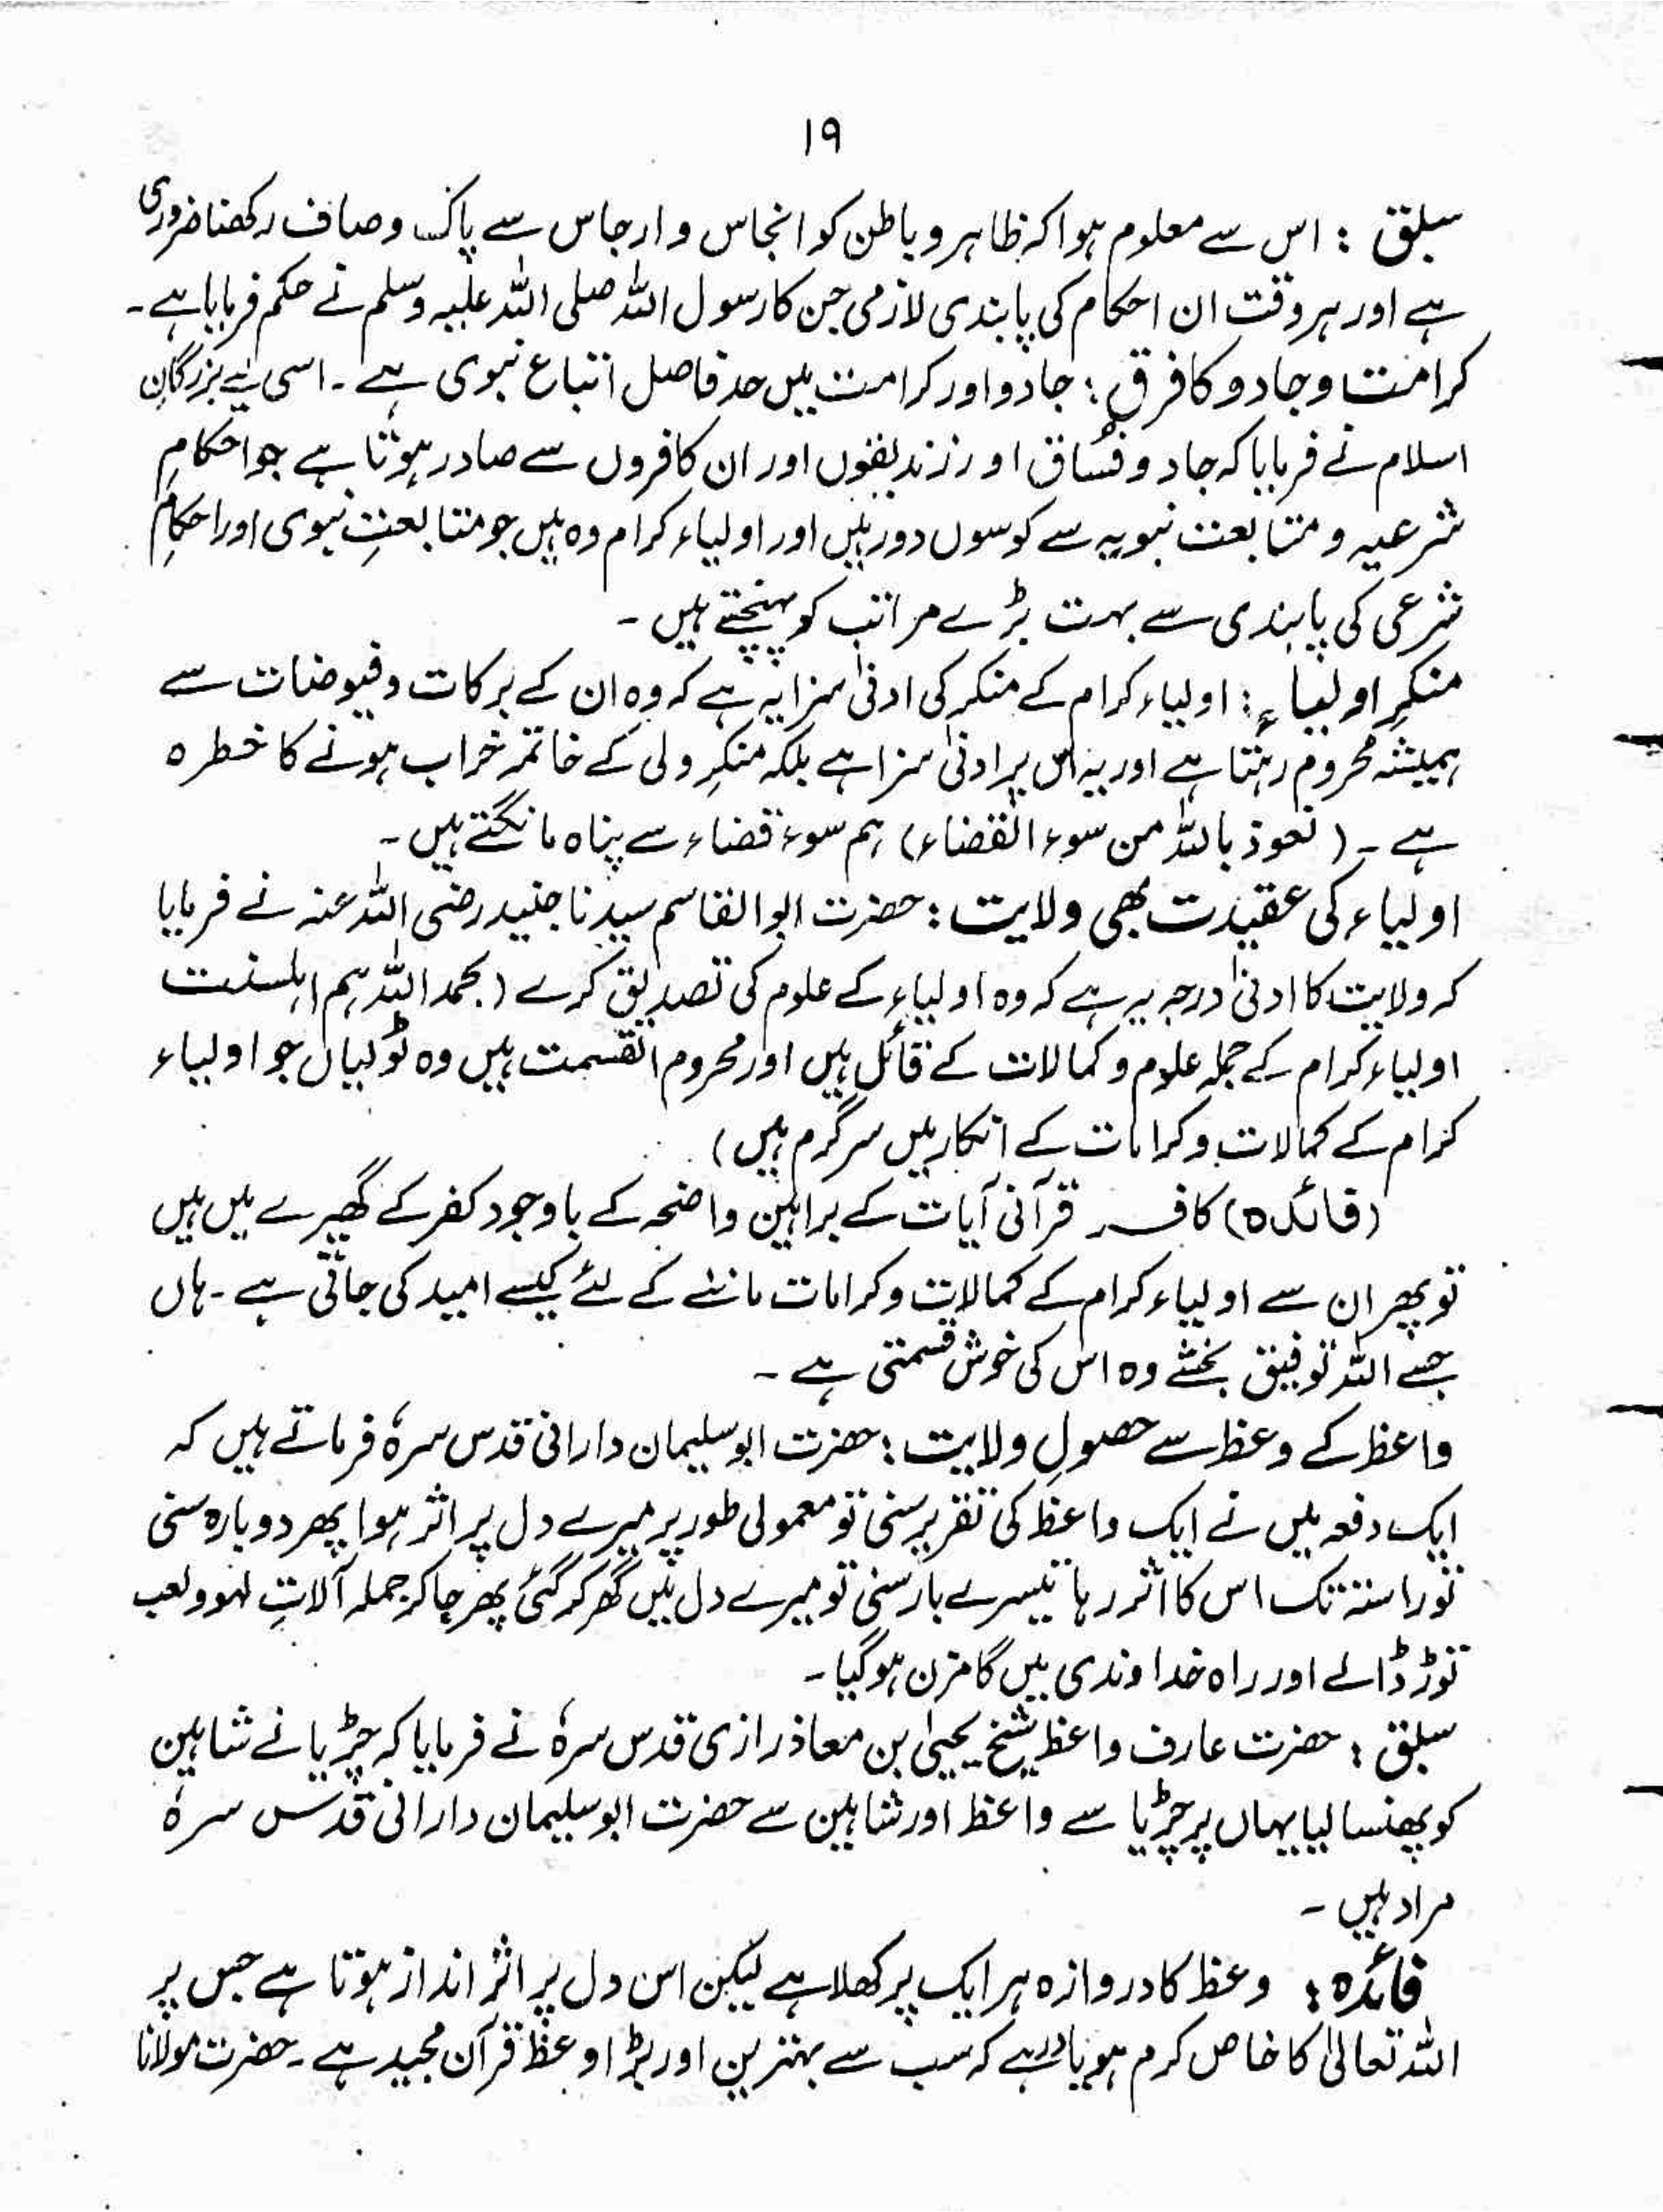 ۱۹
سبق : اس سے معلوم ہوا کہ ظاہر و باطن کو انجاس و ارجاس سے پاک و صاف رکھنا ضروری
ہے اور ہر وقت ان احکام کی پابندی لازمی جن کا رسول اللہ صلی اللہ علیہ وسلم نے حکم فرمایا ہے ۔
کرامت و جادو کا فرق : جادو اور کرامت میں حد فاصل اتباع نبوی ہے ۔ اسی لیے بزرگانِ
اسلام نے فرمایا کہ جادو فُساق اور زندیقوں اور ان کافروں سے صادر ہوتا ہے جو احکامِ
شرعیہ و متابعت نبویہ سے کوسوں دور ہیں اور اولیاء کرام وہ ہیں جو متابعتِ نبوی اور احکامِ
شرعی کی پابندی سے بہت بڑے مراتب کو پہنچتے ہیں ۔
منکرِ اولیاء : اولیاء کرام کے منکر کی ادنیٰ سزا یہ ہے کہ وہ ان کے برکات و فیوضات سے
ہمیشہ محروم رہتا ہے اور یہ اس پر ادنیٰ سزا ہے بلکہ منکرِ ولی کے خاتمہ خراب ہونے کا خطرہ
ہے ۔ (نعوذ باللہ من سوء القضاء) ہم سوء قضاء سے پناہ مانگتے ہیں ۔
اولیاء کی عقیدت بھی ولایت : حضرت ابوالقاسم سیدنا جنید رضی اللہ عنہ نے فرمایا
کہ ولایت کا ادنیٰ درجہ یہ ہے کہ وہ اولیاء کے علوم کی تصدیق کرے (بحمد اللہ ہم اہلسنت
اولیاء کرام کے جملہ علوم و کمالات کے قائل ہیں اور محروم القسمت ہیں وہ ٹولیاں جو اولیاء
کرام کے کمالات و کرامات کے انکار میں سرگرم ہیں)
(فائدہ) کافر قرآنی آیات کے براہین واضحہ کے باوجود کفر کے گھیرے میں ہیں
تو پھر ان سے اولیاء کرام کے کمالات و کرامات ماننے کے لئے کیسے امید کی جاتی ہے ۔ ہاں
جسے اللہ توفیق بخشے وہ اس کی خوش قسمتی ہے ۔
واعظ کے وعظ سے حصولِ ولایت : حضرت ابو سلیمان دارانی قدس سرہٗ فرماتے ہیں کہ
ایک دفعہ میں نے ایک واعظ کی تقریر سنی تو معمولی طور پر میرے دل پر اثر ہوا پھر دوبارہ سنی
تو راستہ تک اس کا اثر رہا تیسرے بار سنی تو میرے دل میں گھر کر گئی پھر جا کر جملہ آلاتِ لہو ولعب
توڑ ڈالے اور راہ خداوندی میں گامزن ہو گیا ۔
سبق : حضرت عارف واعظ شیخ یحییٰ بن معاذ رازی قدس سرہٗ نے فرمایا کہ چڑیا نے شاہین
کو پھنسا لیا یہاں پر چڑیا سے واعظ اور شاہین سے حضرت ابو سلیمان دارانی قدس سرہٗ
مراد ہیں ۔
فائدہ : وعظ کا دروازہ ہر ایک پر کھلا ہے لیکن اس دل پر اثر انداز ہوتا ہے جس پر
اللہ تعالیٰ کا خاص کرم ہو یاد رہے کہ سب سے بہترین اور بڑا وعظ قرآن مجید ہے ۔ حضرت مولانا